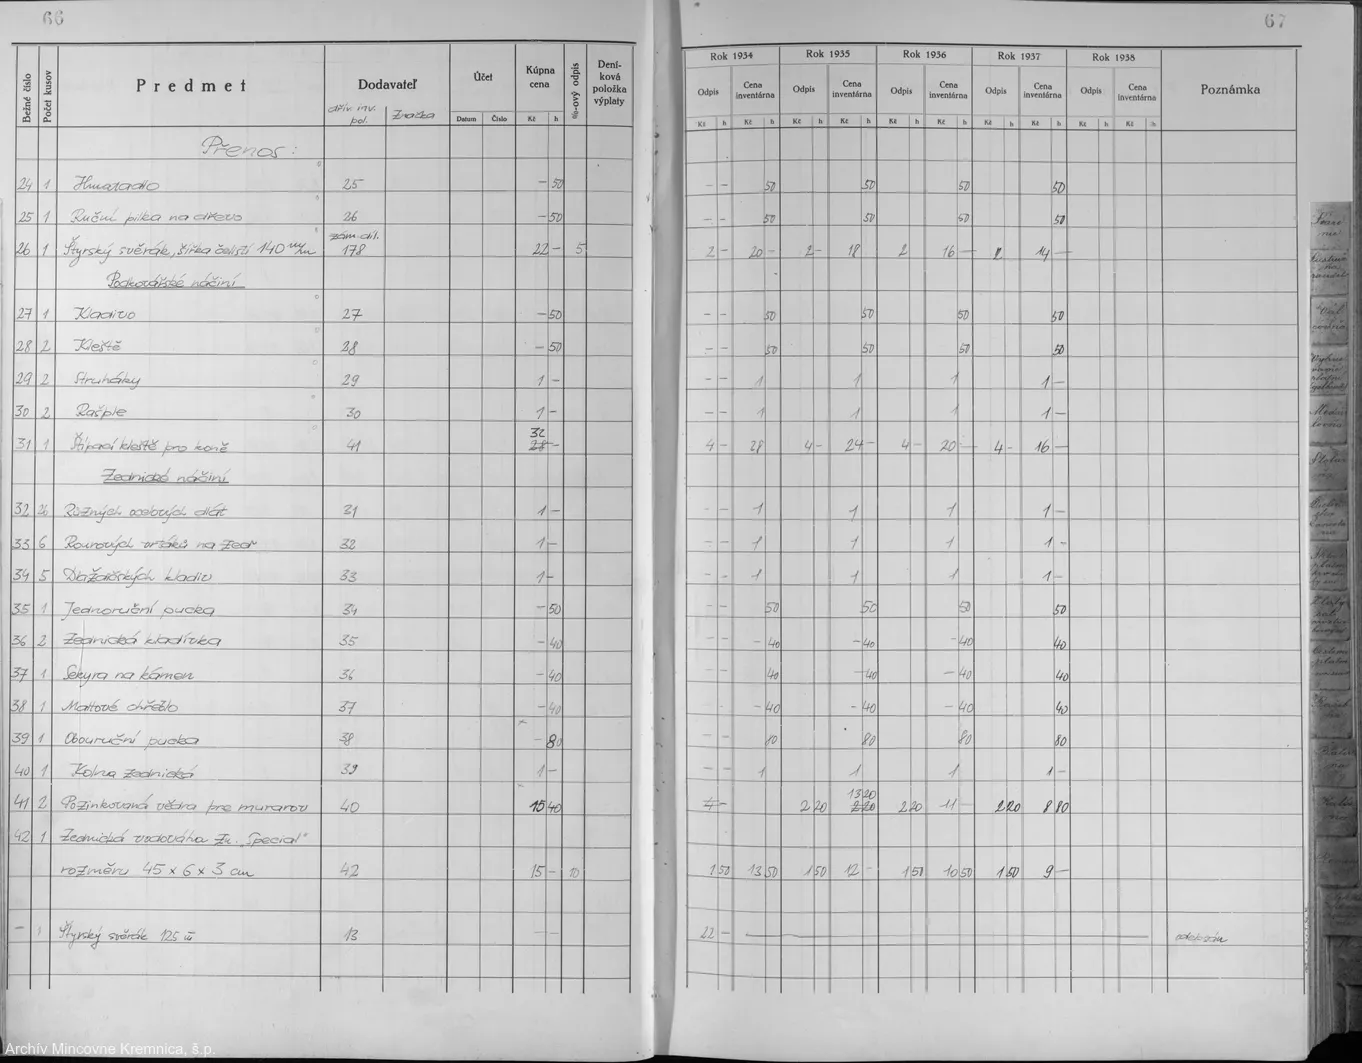 66
Bežné číslo Počet kusov Predmet Dodavateľ Účet Kúpna cena %-ový odpis Deníková položka výplaty
dřív. inv. pol. Značka Datum Číslo Kč h
Přenos:
24 1 Hmatadlo 25 — 50
25 1 Ruční pilka na dřevo 26 — 50
26 1 Štyrský svěrák, šířka čelistí 140 m/m zám. díl. 178 22 — 5
Podkovářské náčiní
27 1 Kladivo 27 — 50
28 2 Kleště 28 — 50
29 2 Struháky 29 1 —
30 2 Rašple 30 1 —
31 1 Štípací kleště pro koně 41 32 28 —
Zednické náčiní
32 26 Různých ocelových dlát 31 1 —
33 6 Rourových vrtáků na zeď 32 1 —
34 5 Dlaždičských kladiv 33 1 —
35 1 Jednoruční pucka 34 — 50
36 2 Zednická kladívka 35 — 40
37 1 Sekyra na kámen 36 — 40
38 1 Maltové chřeblo 37 — 40
39 1 Obouruční pucka 38 — 80
40 1 Kolna zednická 39 1 —
41 2 Pozinkovaná vědra pre murarov 40 15 40
42 1 Zednická vodováha Zn. „Special"
rozměru 45 x 6 x 3 cm 42 15 — 10
— 1 Štyrský svěrák 125 13 — —
67
Rok 1934 Rok 1935 Rok 1936 Rok 1937 Rok 1938 Poznámka
Odpis Cena inventárna Odpis Cena inventárna Odpis Cena inventárna Odpis Cena inventárna Odpis Cena inventárna
Kč h Kč h Kč h Kč h Kč h Kč h Kč h Kč h Kč h Kč h
— — 50 50 50 50
— — 50 50 50 50
2 — 20 — 2 — 18 2 16 — 2 14 —
— — 50 50 50 50
— — 50 50 50 50
— — 1 1 1 1 —
— — 1 1 1 1 —
4 — 28 4 — 24 — 4 — 20 — 4 — 16 —
— — 1 1 1 1 —
— — 1 1 1 1 —
— — 1 1 1 1 —
— — 50 50 50 50
— — — 40 — 40 — 40 40
— — — 40 — 40 — 40 40
— 40 — 40 — 40 40
— — 80 80 80 80
— — 1 1 1 1 —
4 — 2 20 13 20 2 20 2 20 11 — 2 20 8 80
1 50 13 50 1 50 12 — 1 50 10 50 1 50 9 —
22 —
Archív Mincovne Kremnica, š.p.